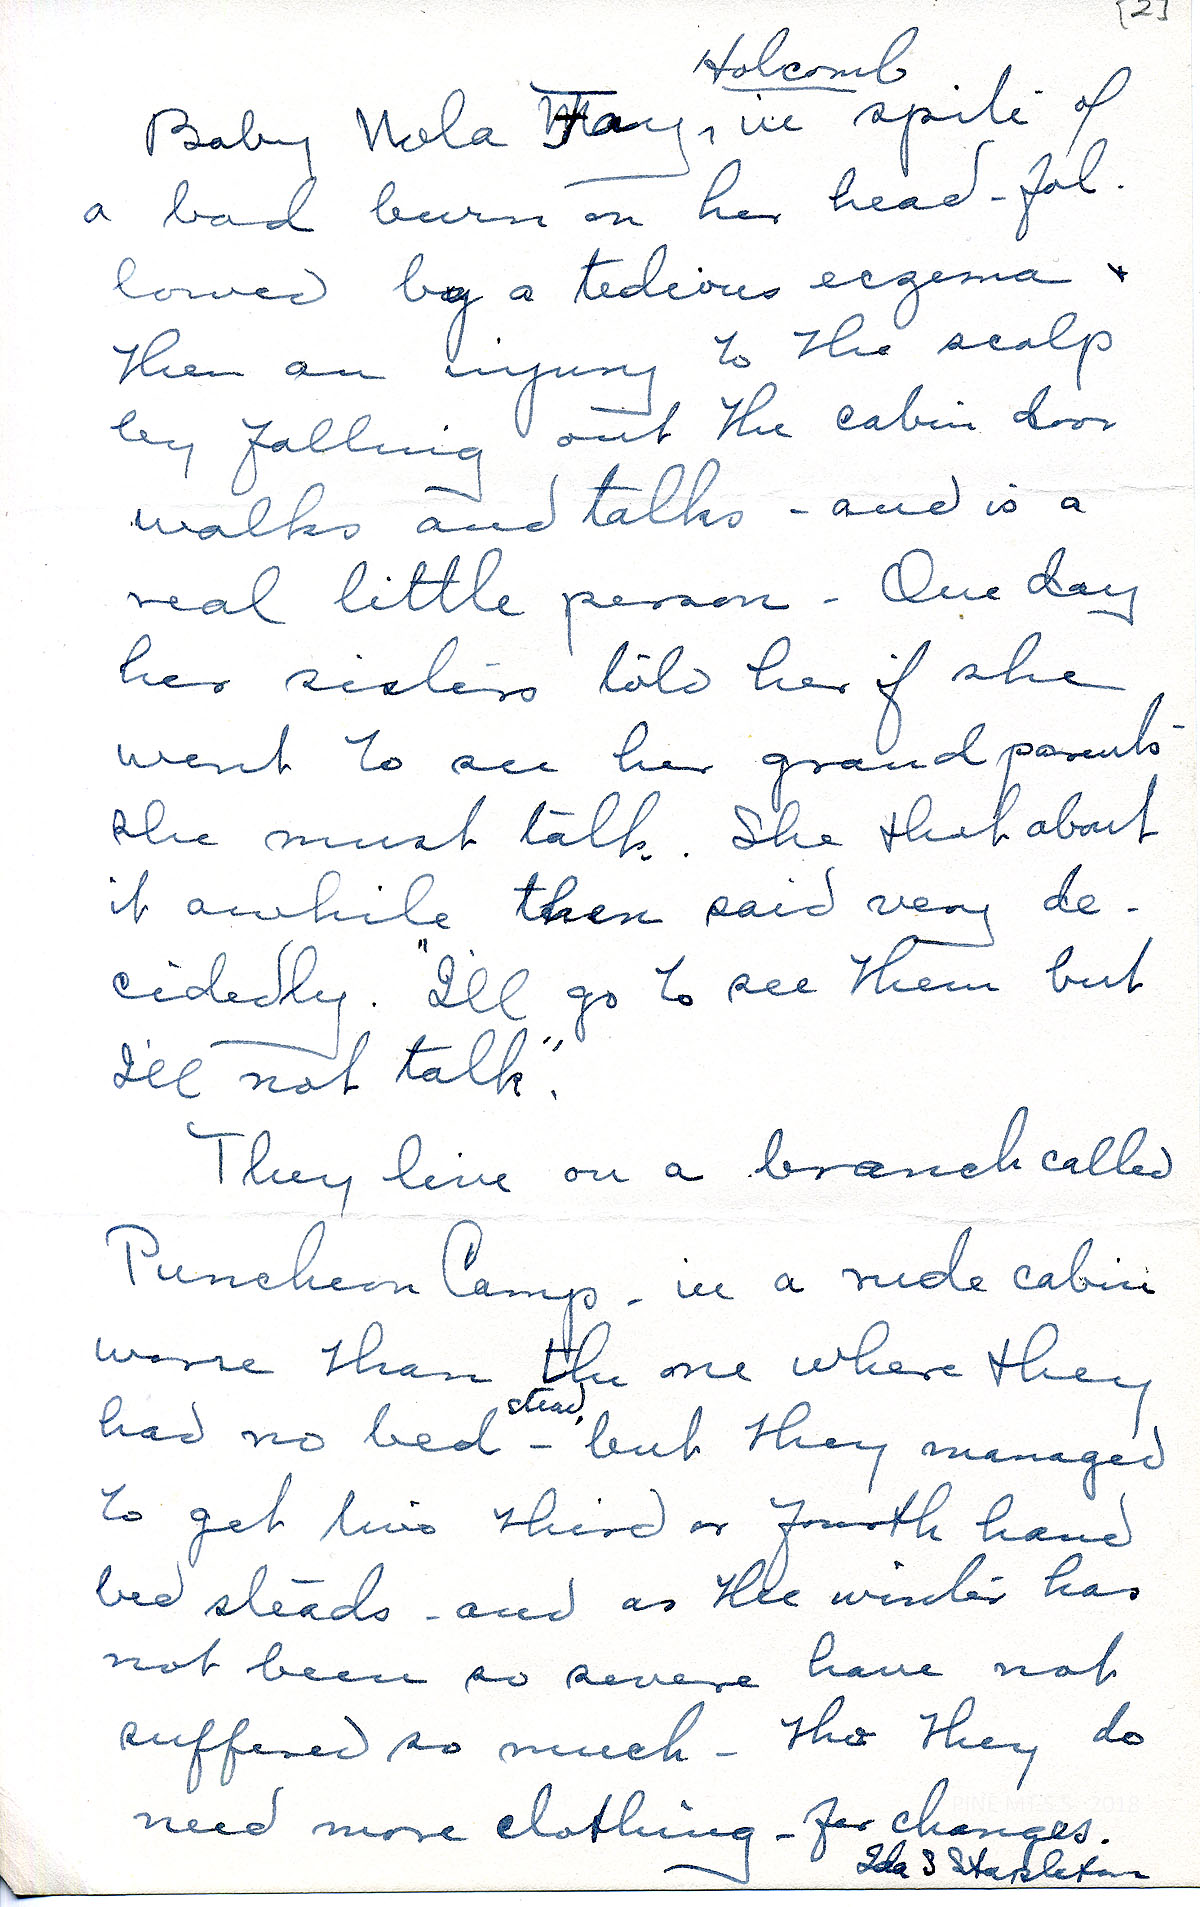 [2]
Holcomb
Baby Nola May, in spite of
a bad burn on her head - fol-
lowed by a tedious eczema +
then an injury to the scalp
by falling out the cabin door
walks and talks - and is a
real little person - One day
her sisters told her if she
went to see her grand parents -
she must talk. She thot about
it awhile then said very de-
cidedly. "I'll go to see them but
I'll not talk".
They live on a branch called
Puncheon Camp - in a rude cabin
worse than the one where they
stead,
had no bed - but they managed
to get two third or fourth hand
bed steads - and as the winter has
not been so severe have not
suffered so much - tho they do
need more clothing - for changes.
Ida S Stapleton